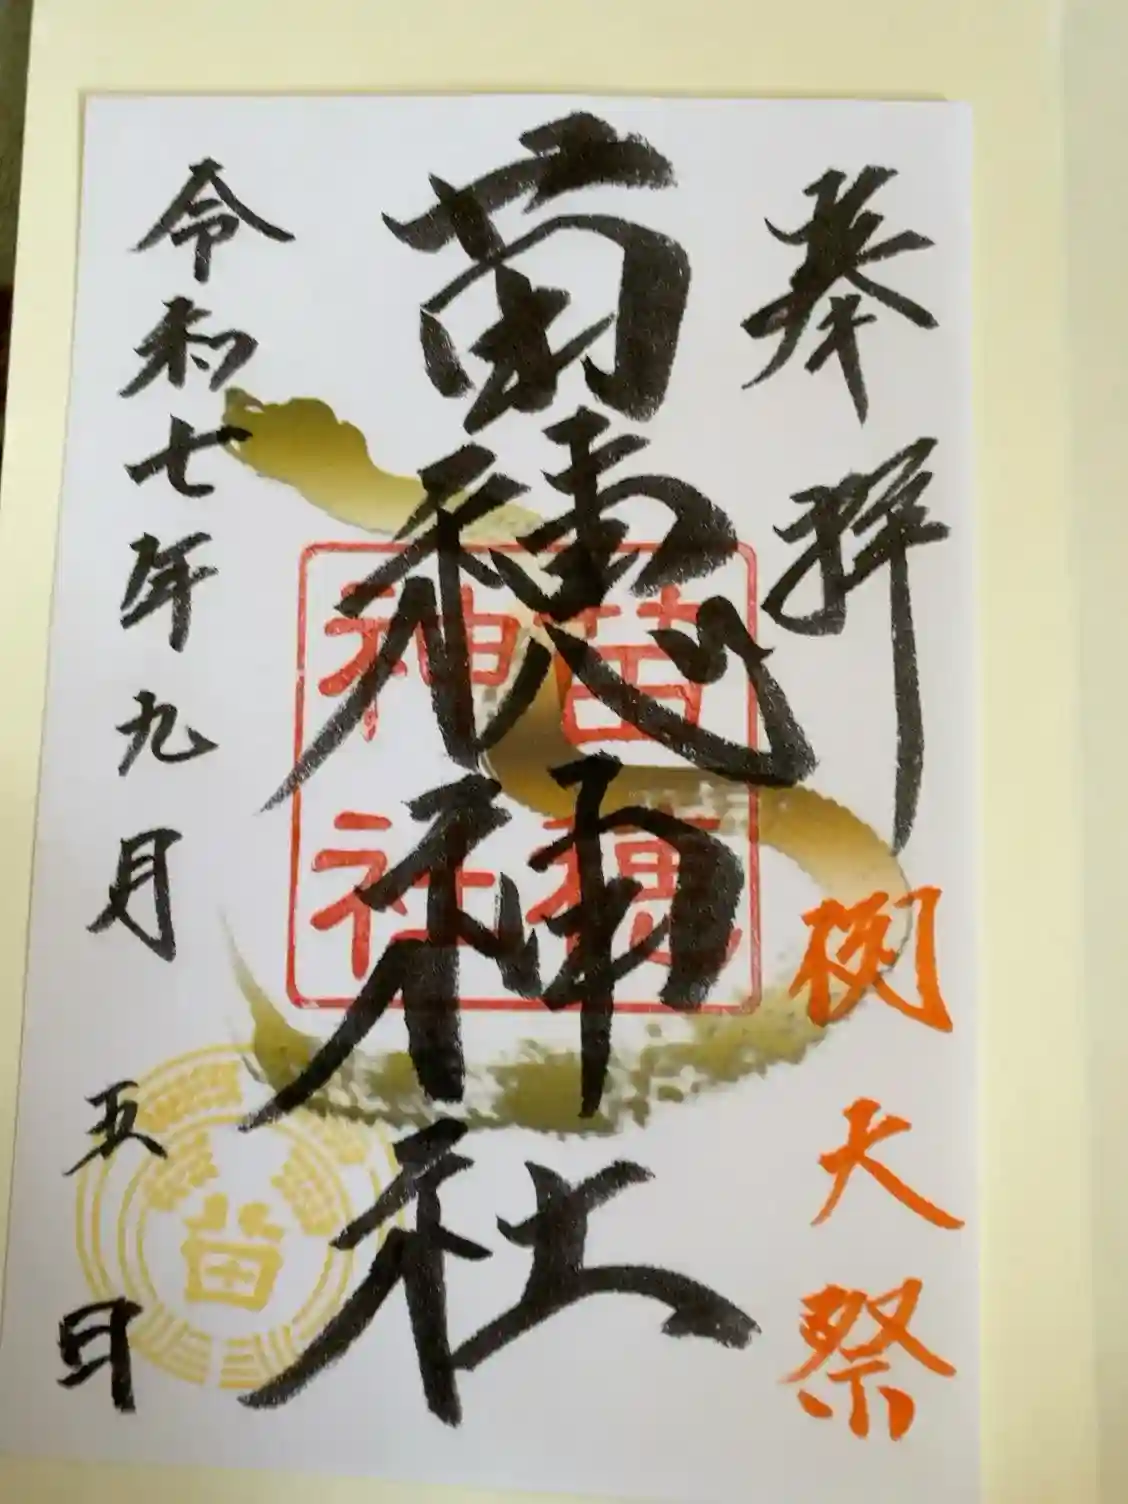 奉拝
例大祭
苗穂神社
苗穂
神社
令和七年九月五日
苗